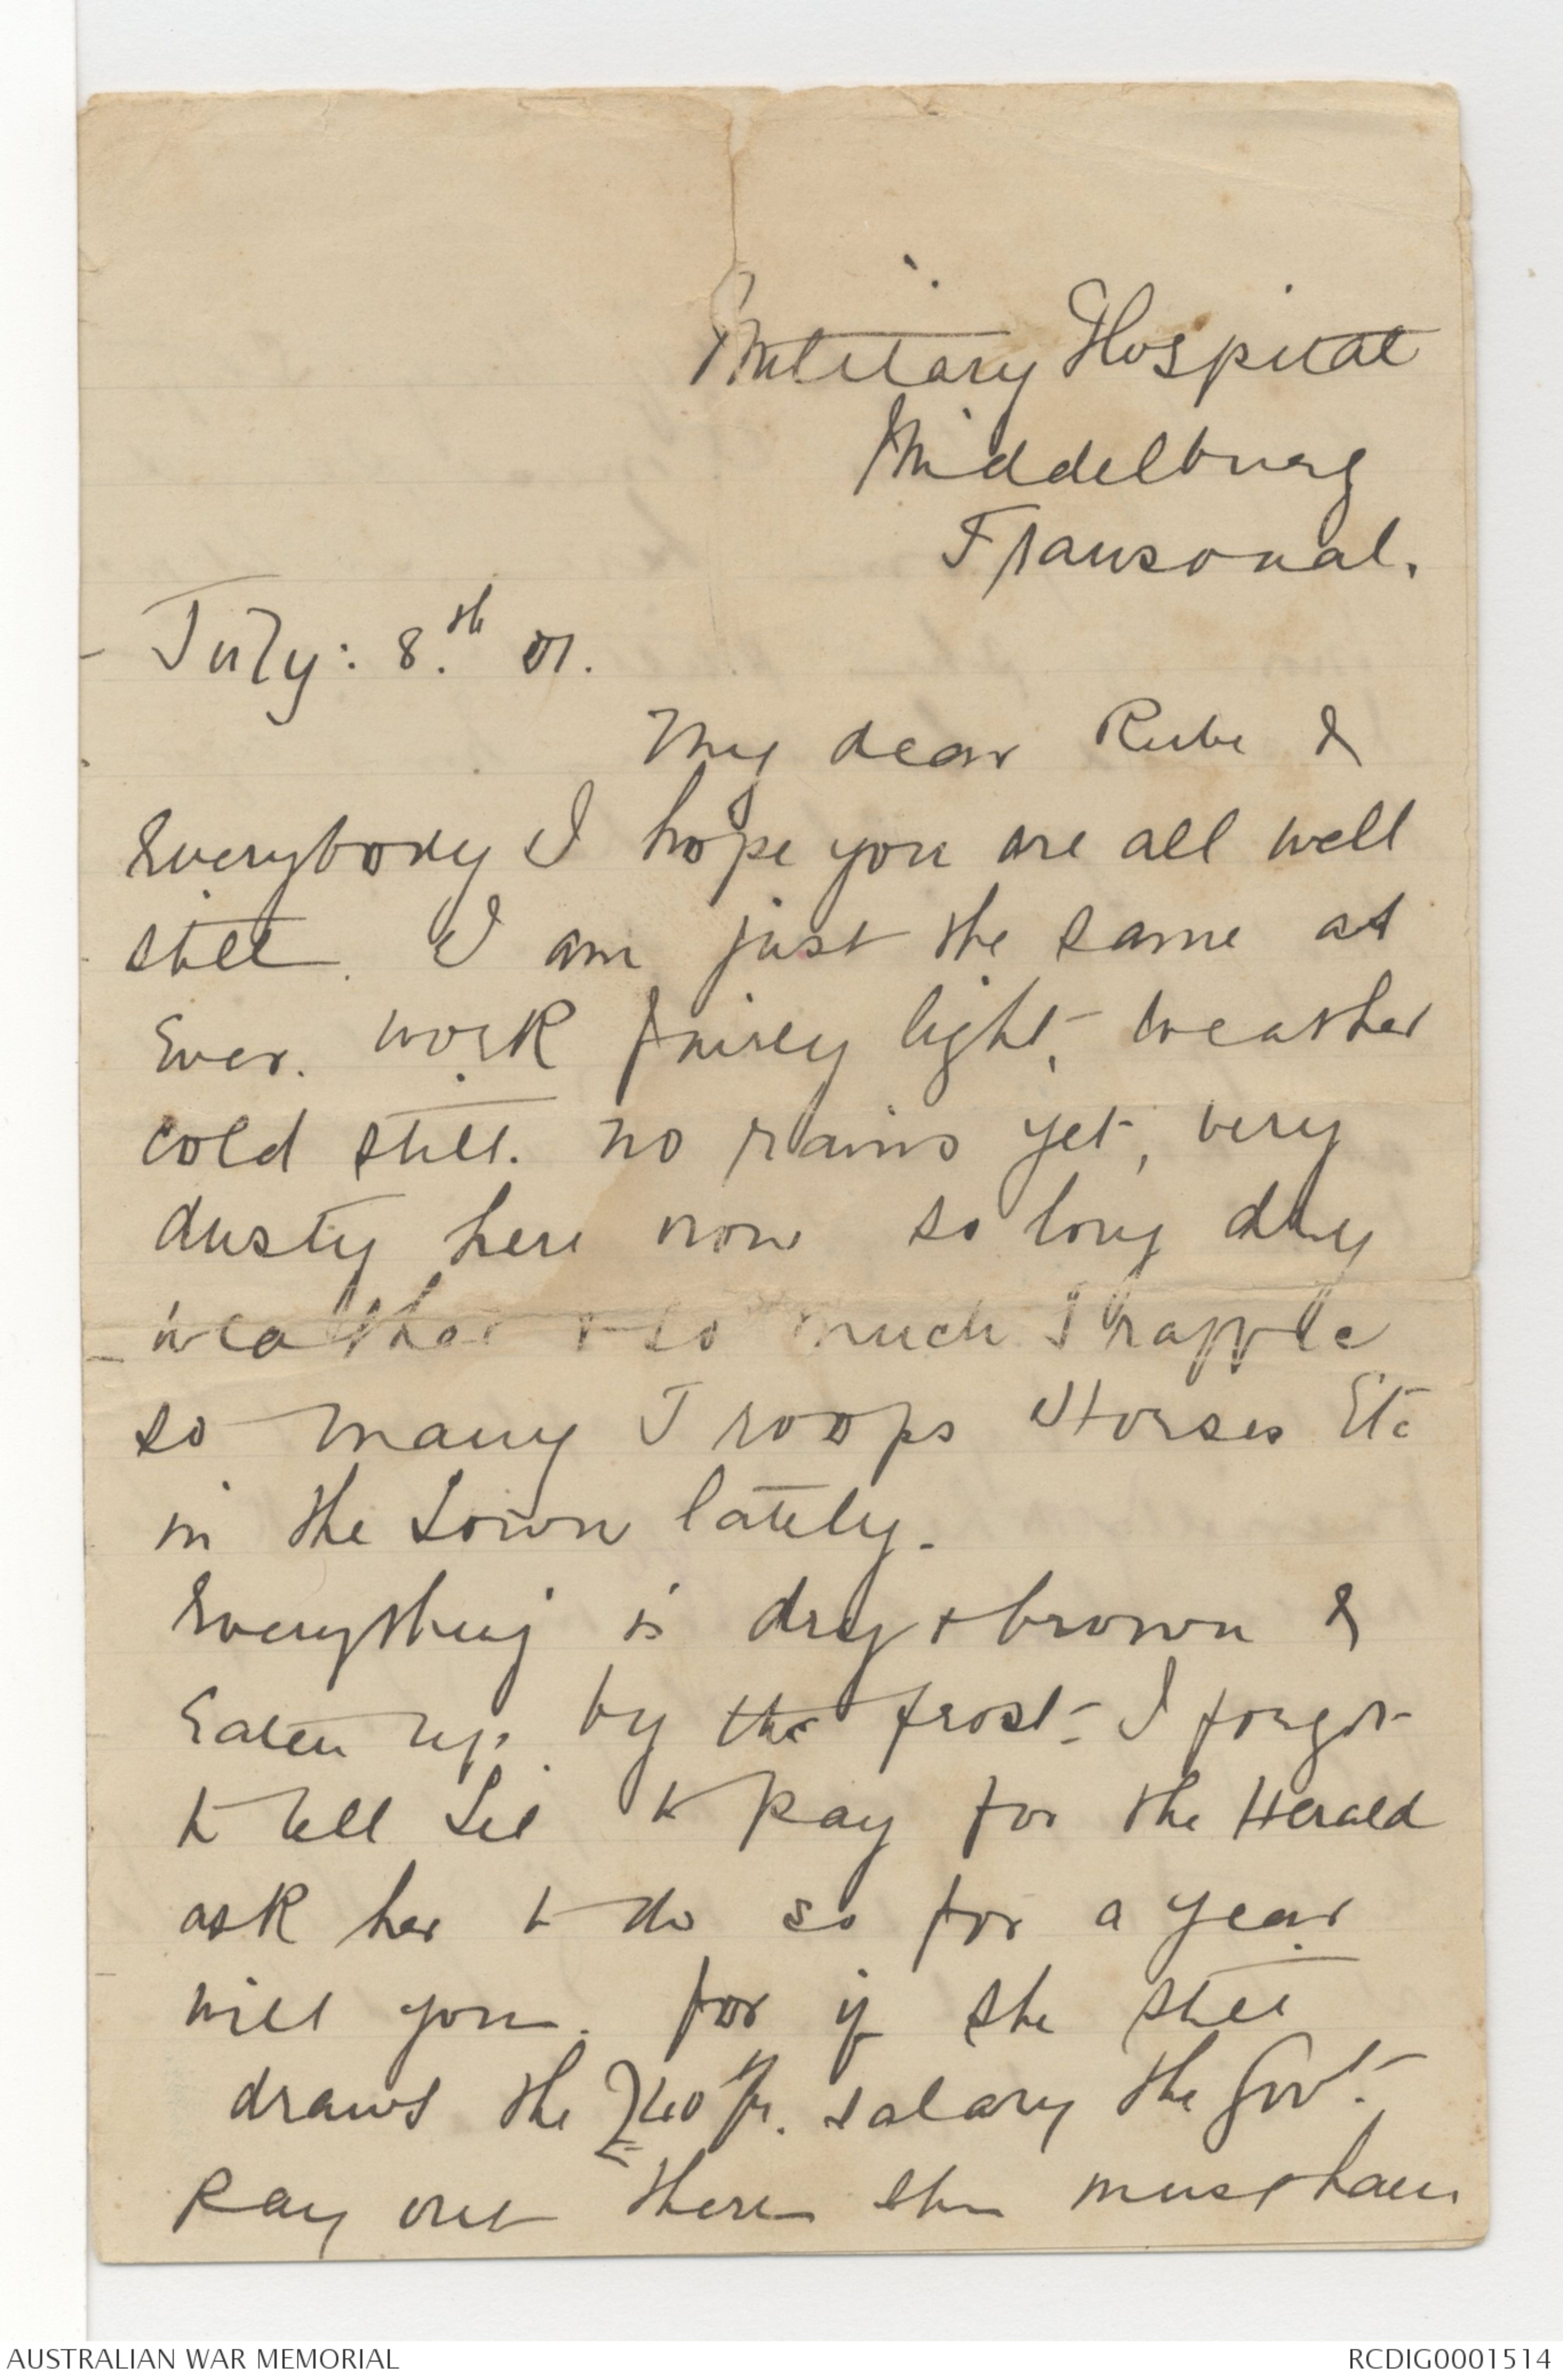 Military Hospital
Middelburg
Transvaal.
July: 8.th 01.
My dear Rube &
Everybody I hope you are all well
still. I am just the same as
Ever. work fairly light, weather
cold still. no rains yet, very
dusty here now so long dry
weather & so much
so many Troops Horses Etc
in the Town lately.
Everything is dry & brown &
Eaten up by the frost - I forgot
to tell Lil to pay for the Herald
ask her to do so for a year
will you. for if she still
draws the £40 pr. salary the Govt.
pay out there she must have
AUSTRALIAN WAR MEMORIAL
RCDIG0001514